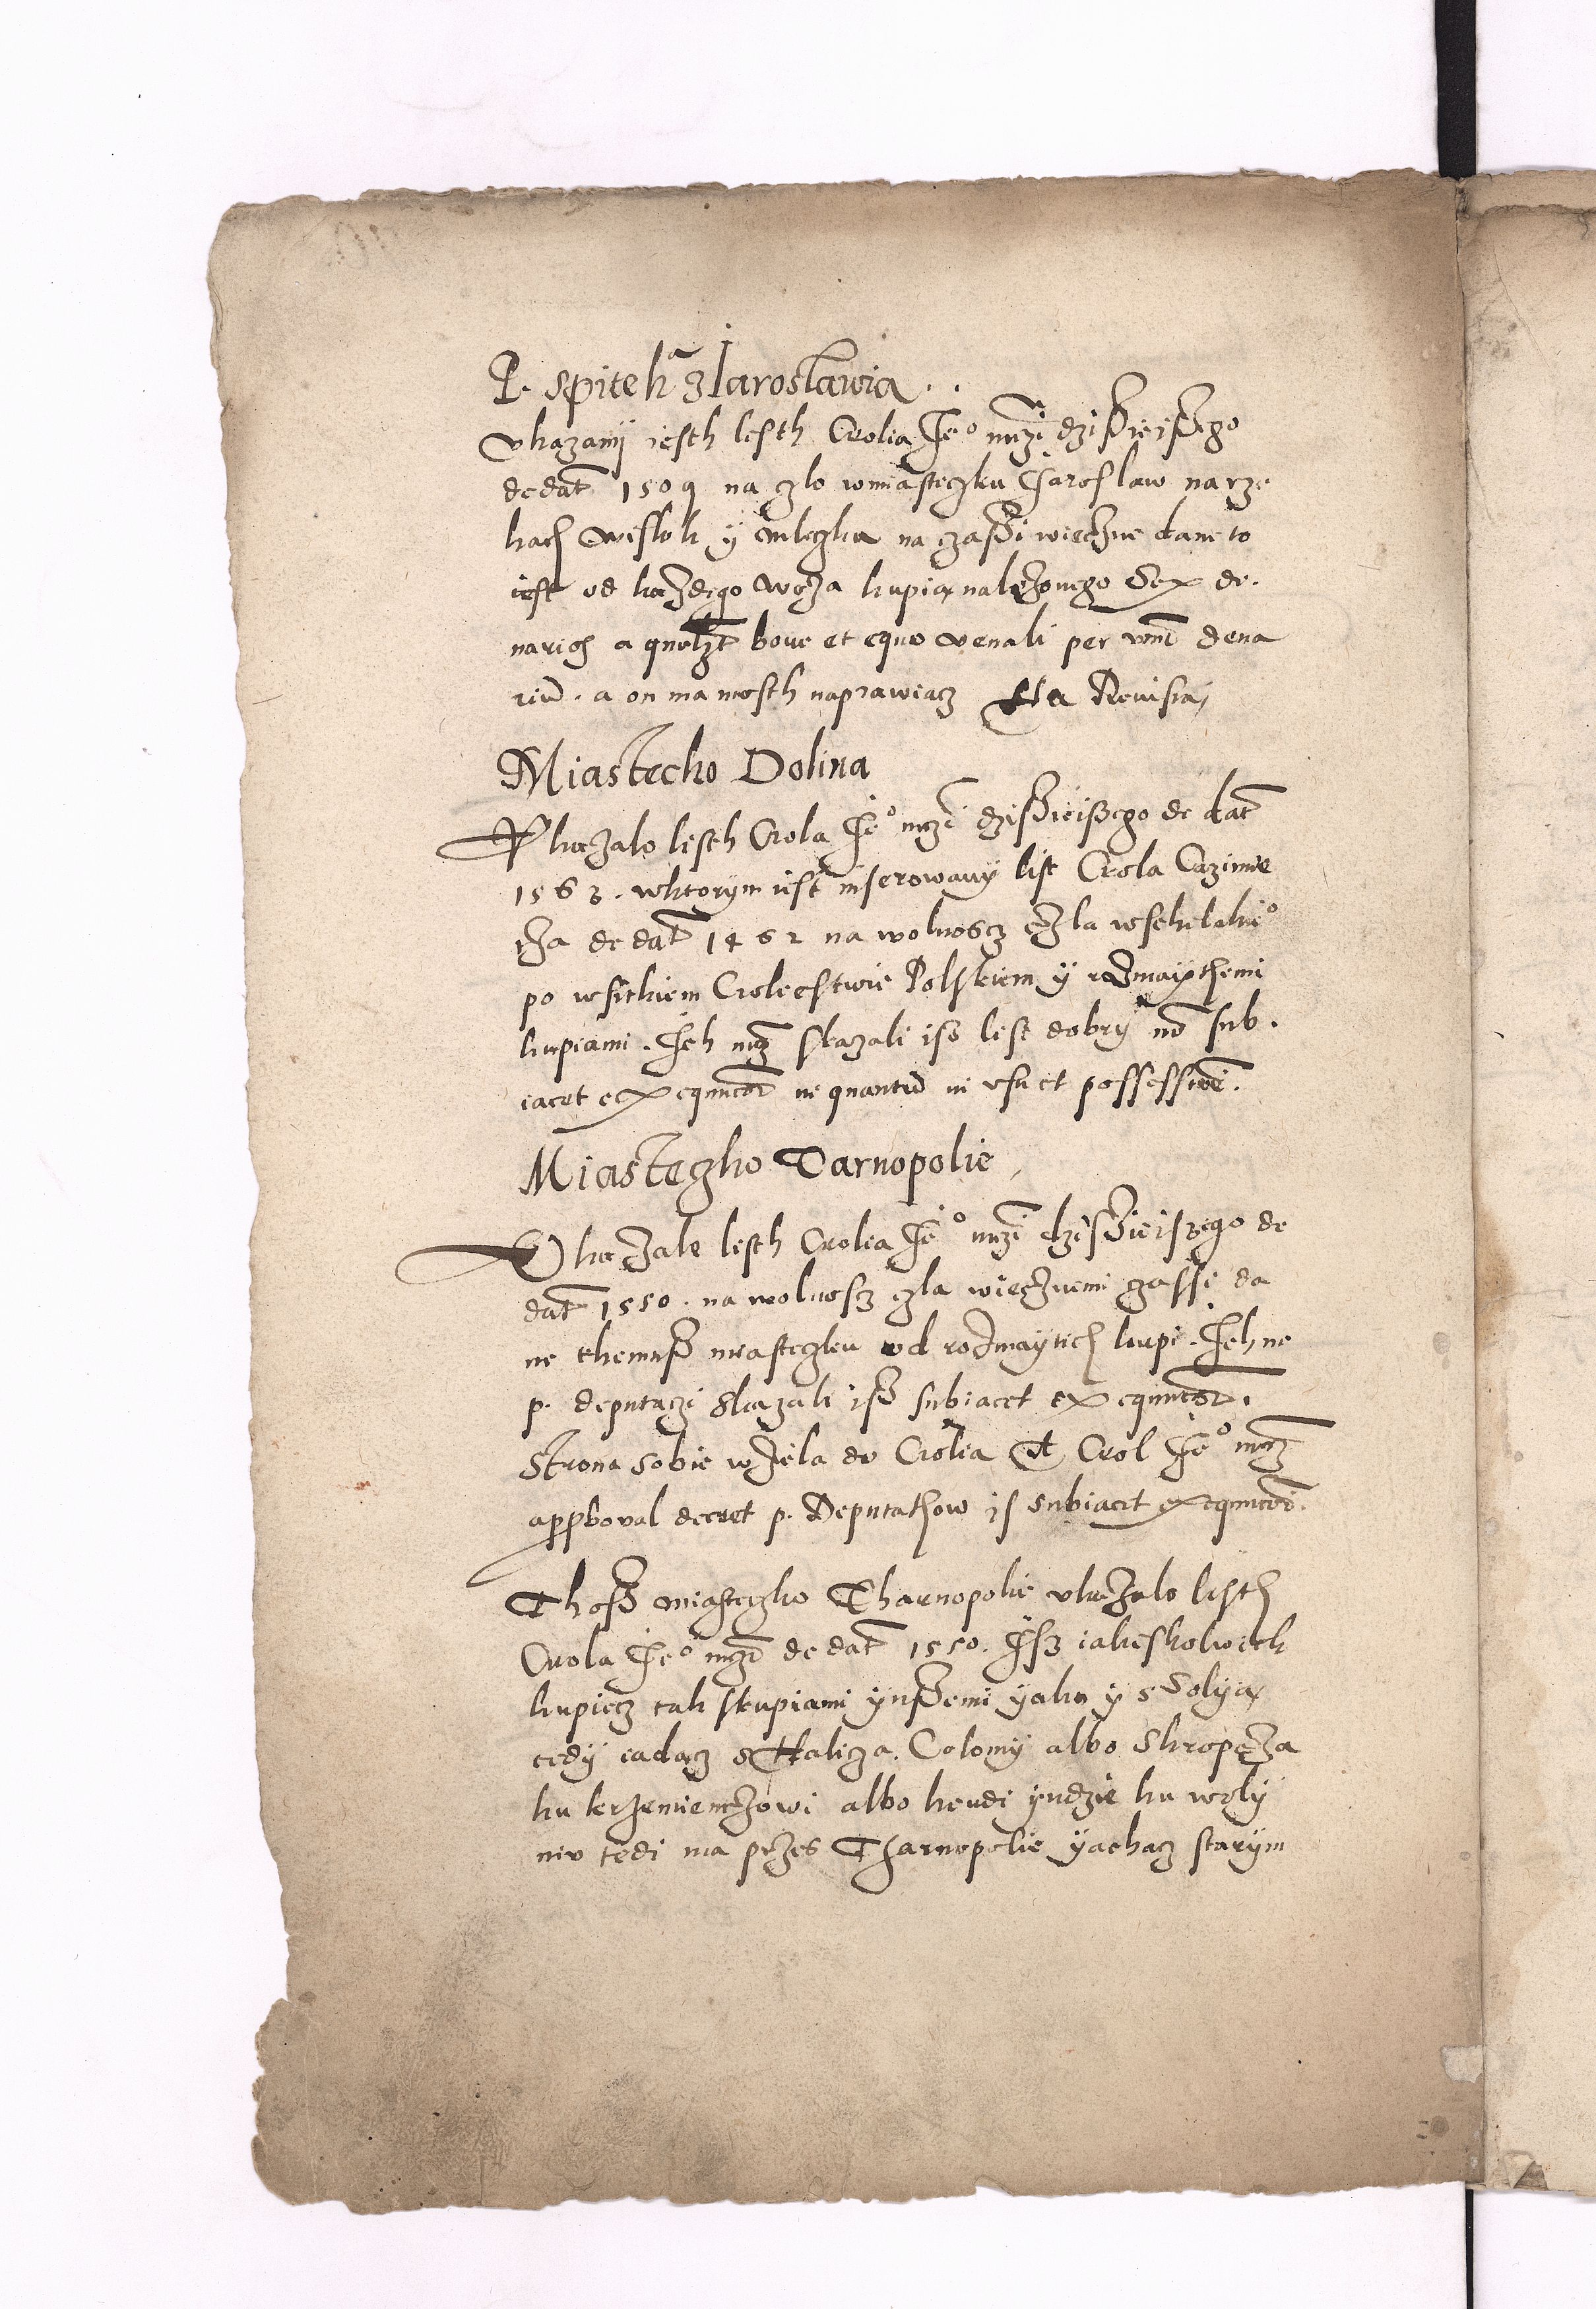 P. spitekª z Jaroslawia..
Vkazanÿ iesth lesth Crolia Je° mczi dzisßieisßego
de dat 1509 na czlo wmiasteczku Jaroslaw na rze
kach Wislok ÿ mleczka na czaßi wieczne dane to
iest od kazdego woza kupią nalozonego Sex de.
narios a quolzt boue et equo venali per vnu dena
riu. a on ma mosth naprawiacz Na Reuisia,
Miastecko Dolina
Vkazalo lesth Crola Je° mczi dzißieißego de dat
1563. wktorym iest inserowany list Crola Cazimie
rza de dat 1462 na wolnoscz czla wselelakie°
po wsitkiem Crolestwie Polskiem ÿ rozmaythemi
kupiami. Jch mcz skazali iso list dobrÿ no sub.
iacet exequcioi in quantu in vsu et possessioe.
Miasteczko Tarnopolie
Vkazale lesth Crolia Je° mczi dzißieiszego de
dat 1550. na wolnosz czla wiecznemi czassi da
ne themuß miasteczku od rozmaytich kupi. Jch me
p. deputaczi skazali iß subiacet exequcioi.
Strona sobie wziela do Crolia Et Crol Je° mcz
approboval decret p. Deputathow is subiacet exequcioi.
Thoß miasteczko Tharnopolie vkazalo lesth
Crola Je° mczi de dat 1550. Jsz iakieskolwiek
kupiecz tak skupiami ynßemi yako y s Solyą
tedy iadącz s Halicza. Colomÿ albo s kropcza
ku krzemienczowi albo kendi yndzie ku wolÿ
niu tedi ma przes Tharnopolie yachacz starym